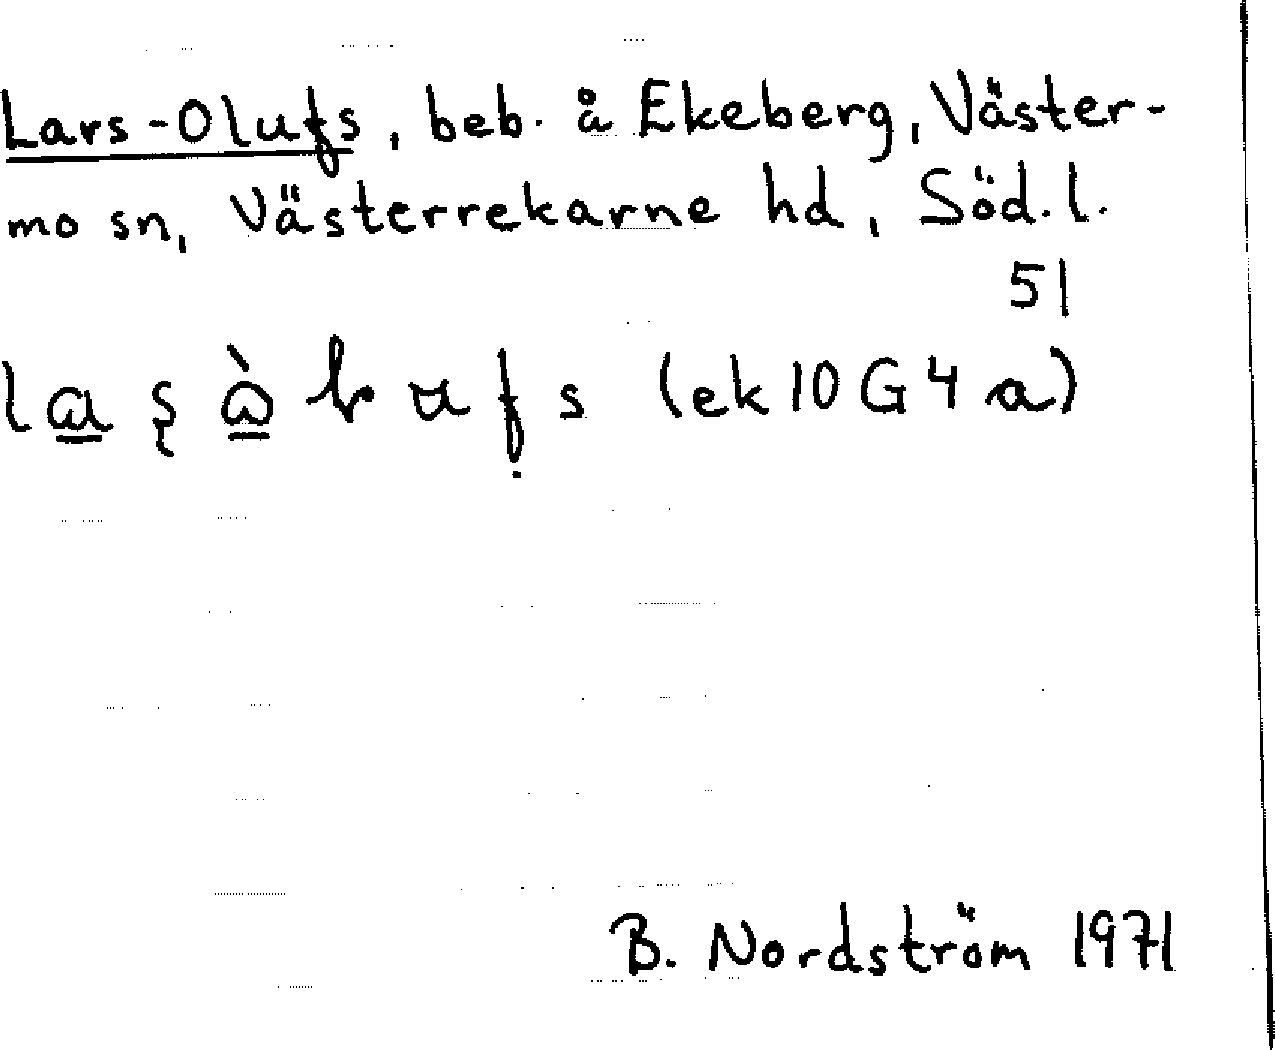 Lars-Olufs, beb. å Ekeberg, Väster-
mo sn, Västerrekarne hd, Söd.l.
51
(ek 10 G 4 a)
B. Nordström 1971